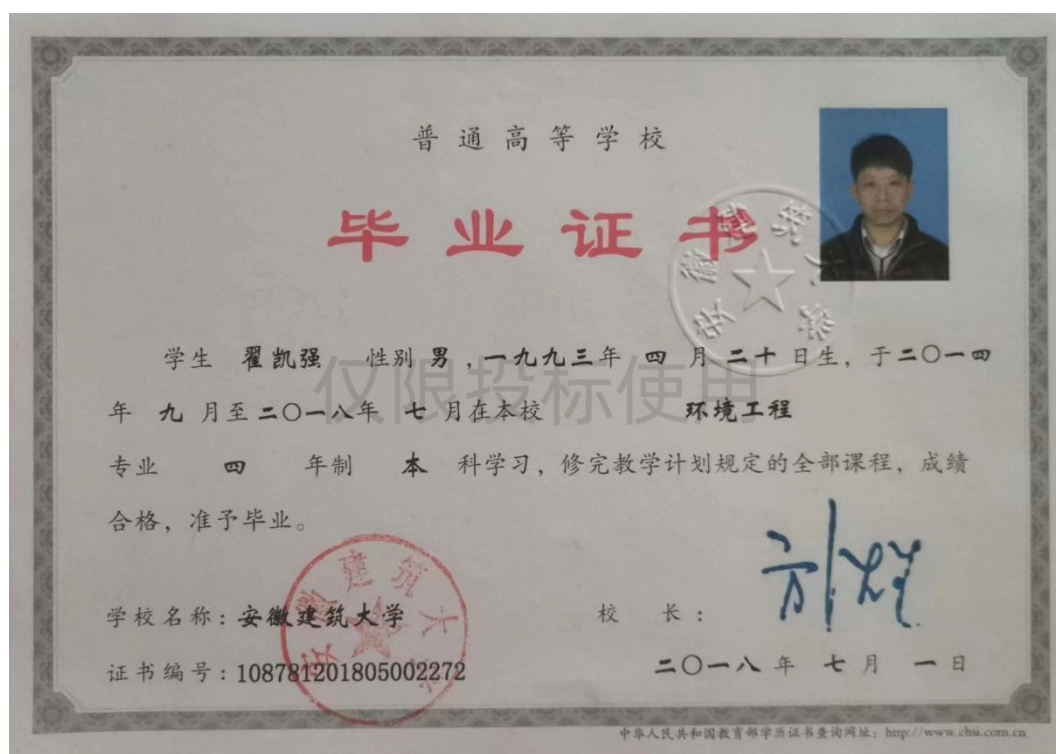 普通高等学校
毕业证书
安徽建筑大学
学生 翟凯强 性别 男，一九九三年 四 月 二十 日生，于二〇一四
仅限投标使用
年 九 月至二〇一八年 七 月在本校 环境工程
专业 四 年制 本 科学习，修完教学计划规定的全部课程，成绩
合格，准予毕业。
安徽建筑大学
学校名称：安徽建筑大学 校 长：
证书编号：108781201805002272 二〇一八 年 七 月 一 日
中华人民共和国教育部学历证书查询网址：http://www.chsi.com.cn